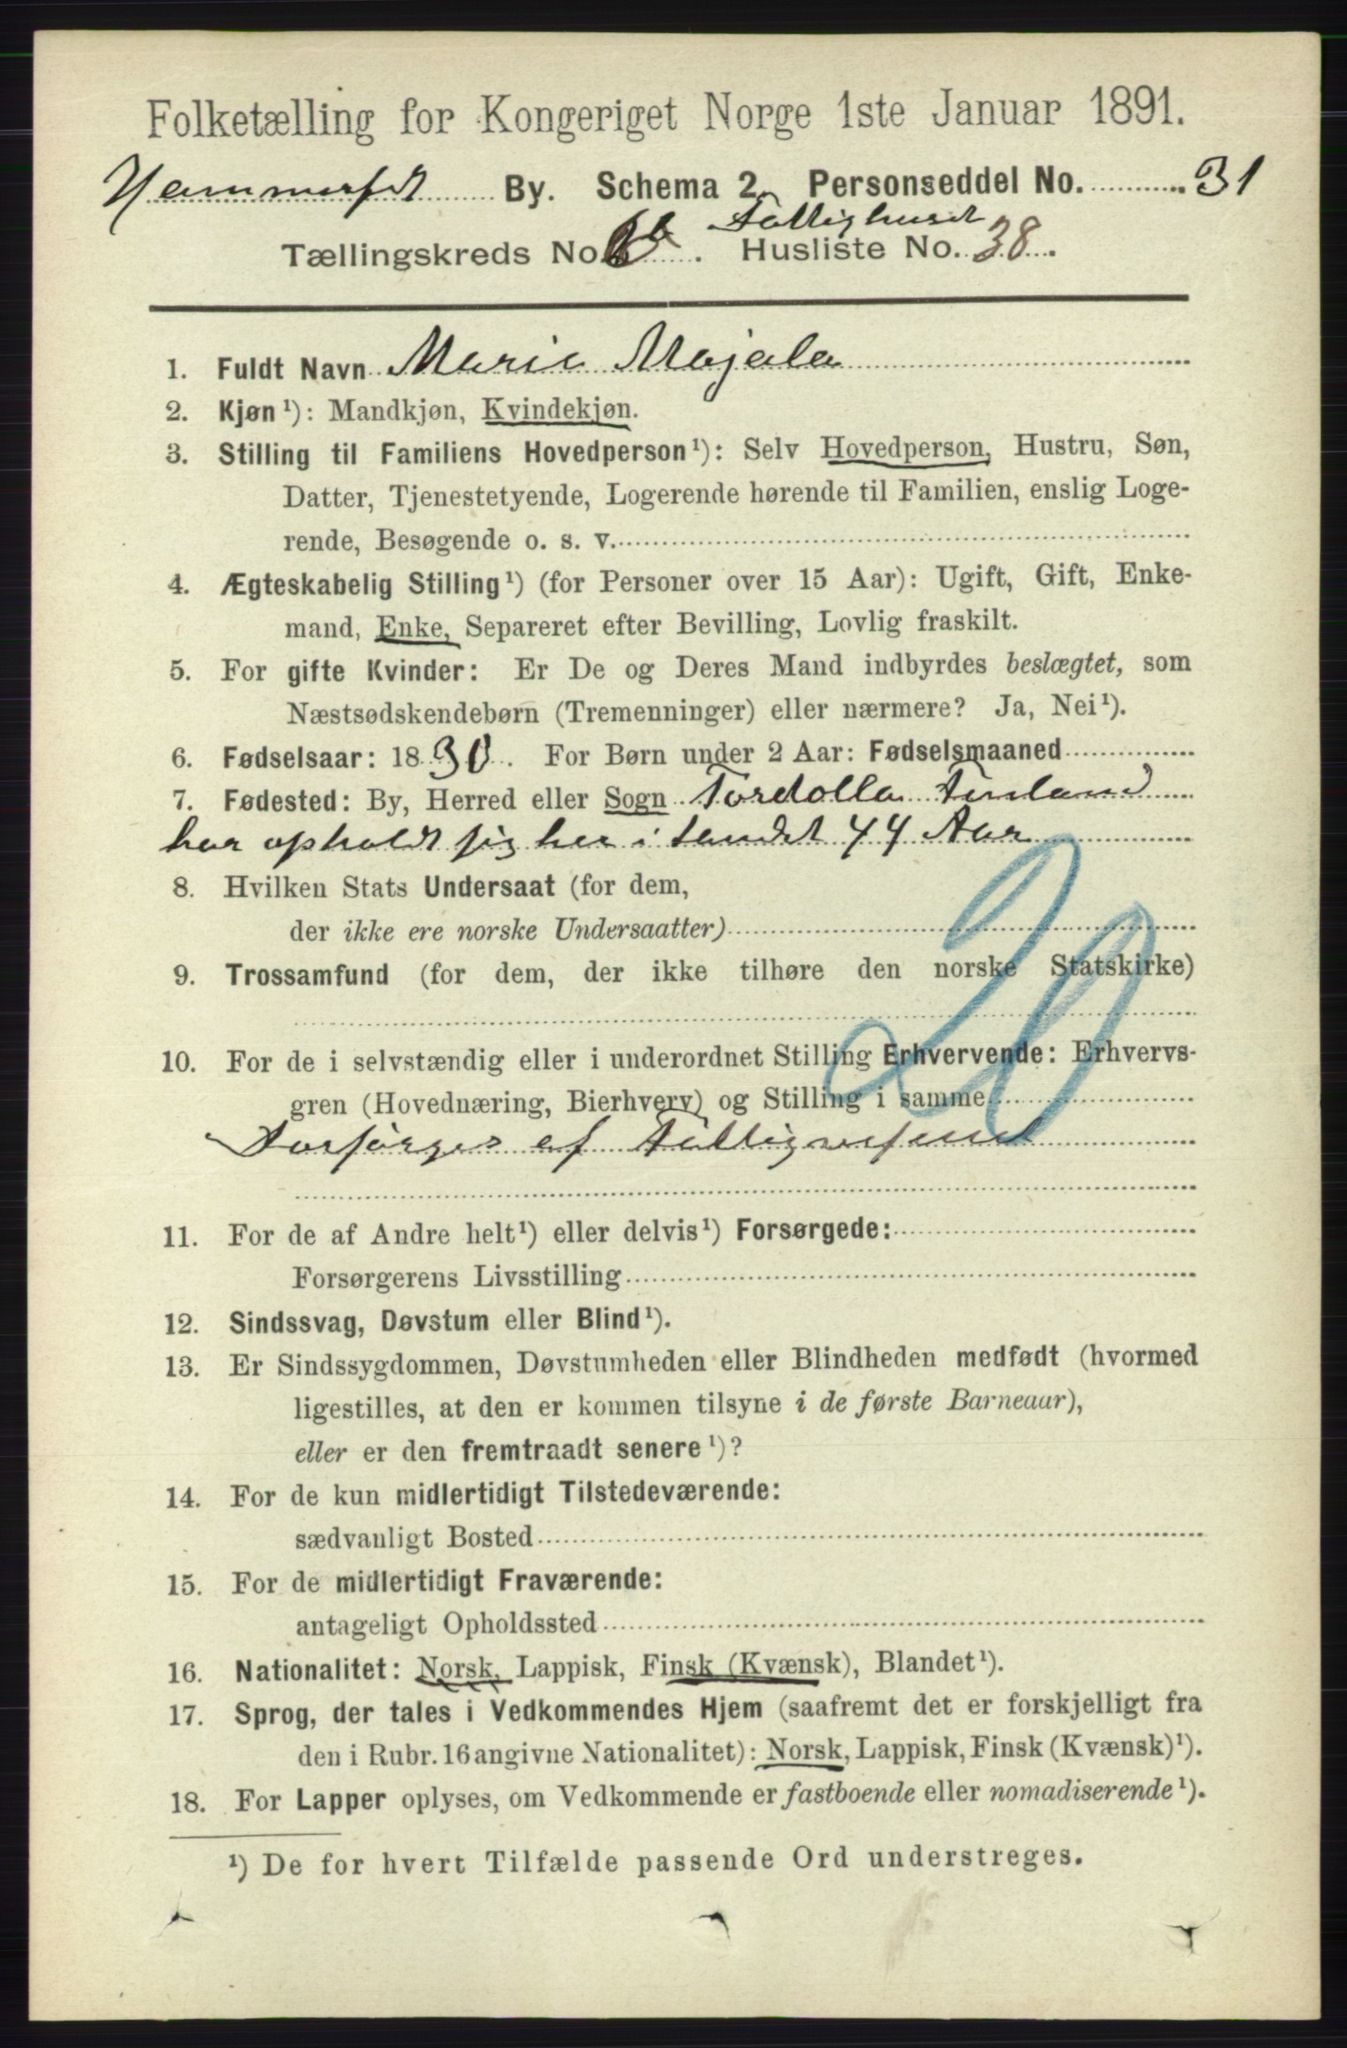 Folketælling for Kongeriget Norge 1ste Januar 1891.
Hammerfest By. Schema 2. Personseddel No. 31
Fattighuset
Tællingskreds No. 6 b. Husliste No. 38.
1. Fuldt Navn Marie Majala
2. Kjøn¹): Mandkjøn, Kvindekjøn.
3. Stilling til Familiens Hovedperson¹): Selv Hovedperson, Hustru, Søn,
Datter, Tjenestetyende, Logerende hørende til Familien, enslig Loge-
rende, Besøgende o. s. v.
4. Ægteskabelig Stilling¹) (for Personer over 15 Aar): Ugift, Gift, Enke-
mand, Enke, Separeret efter Bevilling, Lovlig fraskilt.
5. For gifte Kvinder: Er De og Deres Mand indbyrdes beslægtet, som
Næstsødskendebørn (Tremenninger) eller nærmere? Ja, Nei¹).
6. Fødselsaar: 1830. For Børn under 2 Aar: Fødselsmaaned
7. Fødested: By, Herred eller Sogn Tordolla Finland
har opholdt sig her i Landet 44 Aar
8. Hvilken Stats Undersaat (for dem,
der ikke ere norske Undersaatter)
9. Trossamfund (for dem, der ikke tilhøre den norske Statskirke)
20
10. For de i selvstændig eller i underordnet Stilling Erhvervende: Erhvervs-
gren (Hovednæring, Bierhverv) og Stilling i samme
Forsørges af Fattigvæsenet
11. For de af Andre helt¹) eller delvis¹) Forsørgede:
Forsørgerens Livsstilling
12. Sindssvag, Døvstum eller Blind¹).
13. Er Sindssygdommen, Døvstumheden eller Blindheden medfødt (hvormed
ligestilles, at den er kommen tilsyne i de første Barneaar),
eller er den fremtraadt senere¹)?
14. For de kun midlertidigt Tilstedeværende:
sædvanligt Bosted
15. For de midlertidigt Fraværende:
antageligt Opholdssted
16. Nationalitet: Norsk, Lappisk, Finsk (Kvænsk), Blandet¹).
17. Sprog, der tales i Vedkommendes Hjem (saafremt det er forskjelligt fra
den i Rubr. 16 angivne Nationalitet): Norsk, Lappisk, Finsk (Kvænsk)¹).
18. For Lapper oplyses, om Vedkommende er fastboende eller nomadiserende¹).
¹) De for hvert Tilfælde passende Ord understreges.